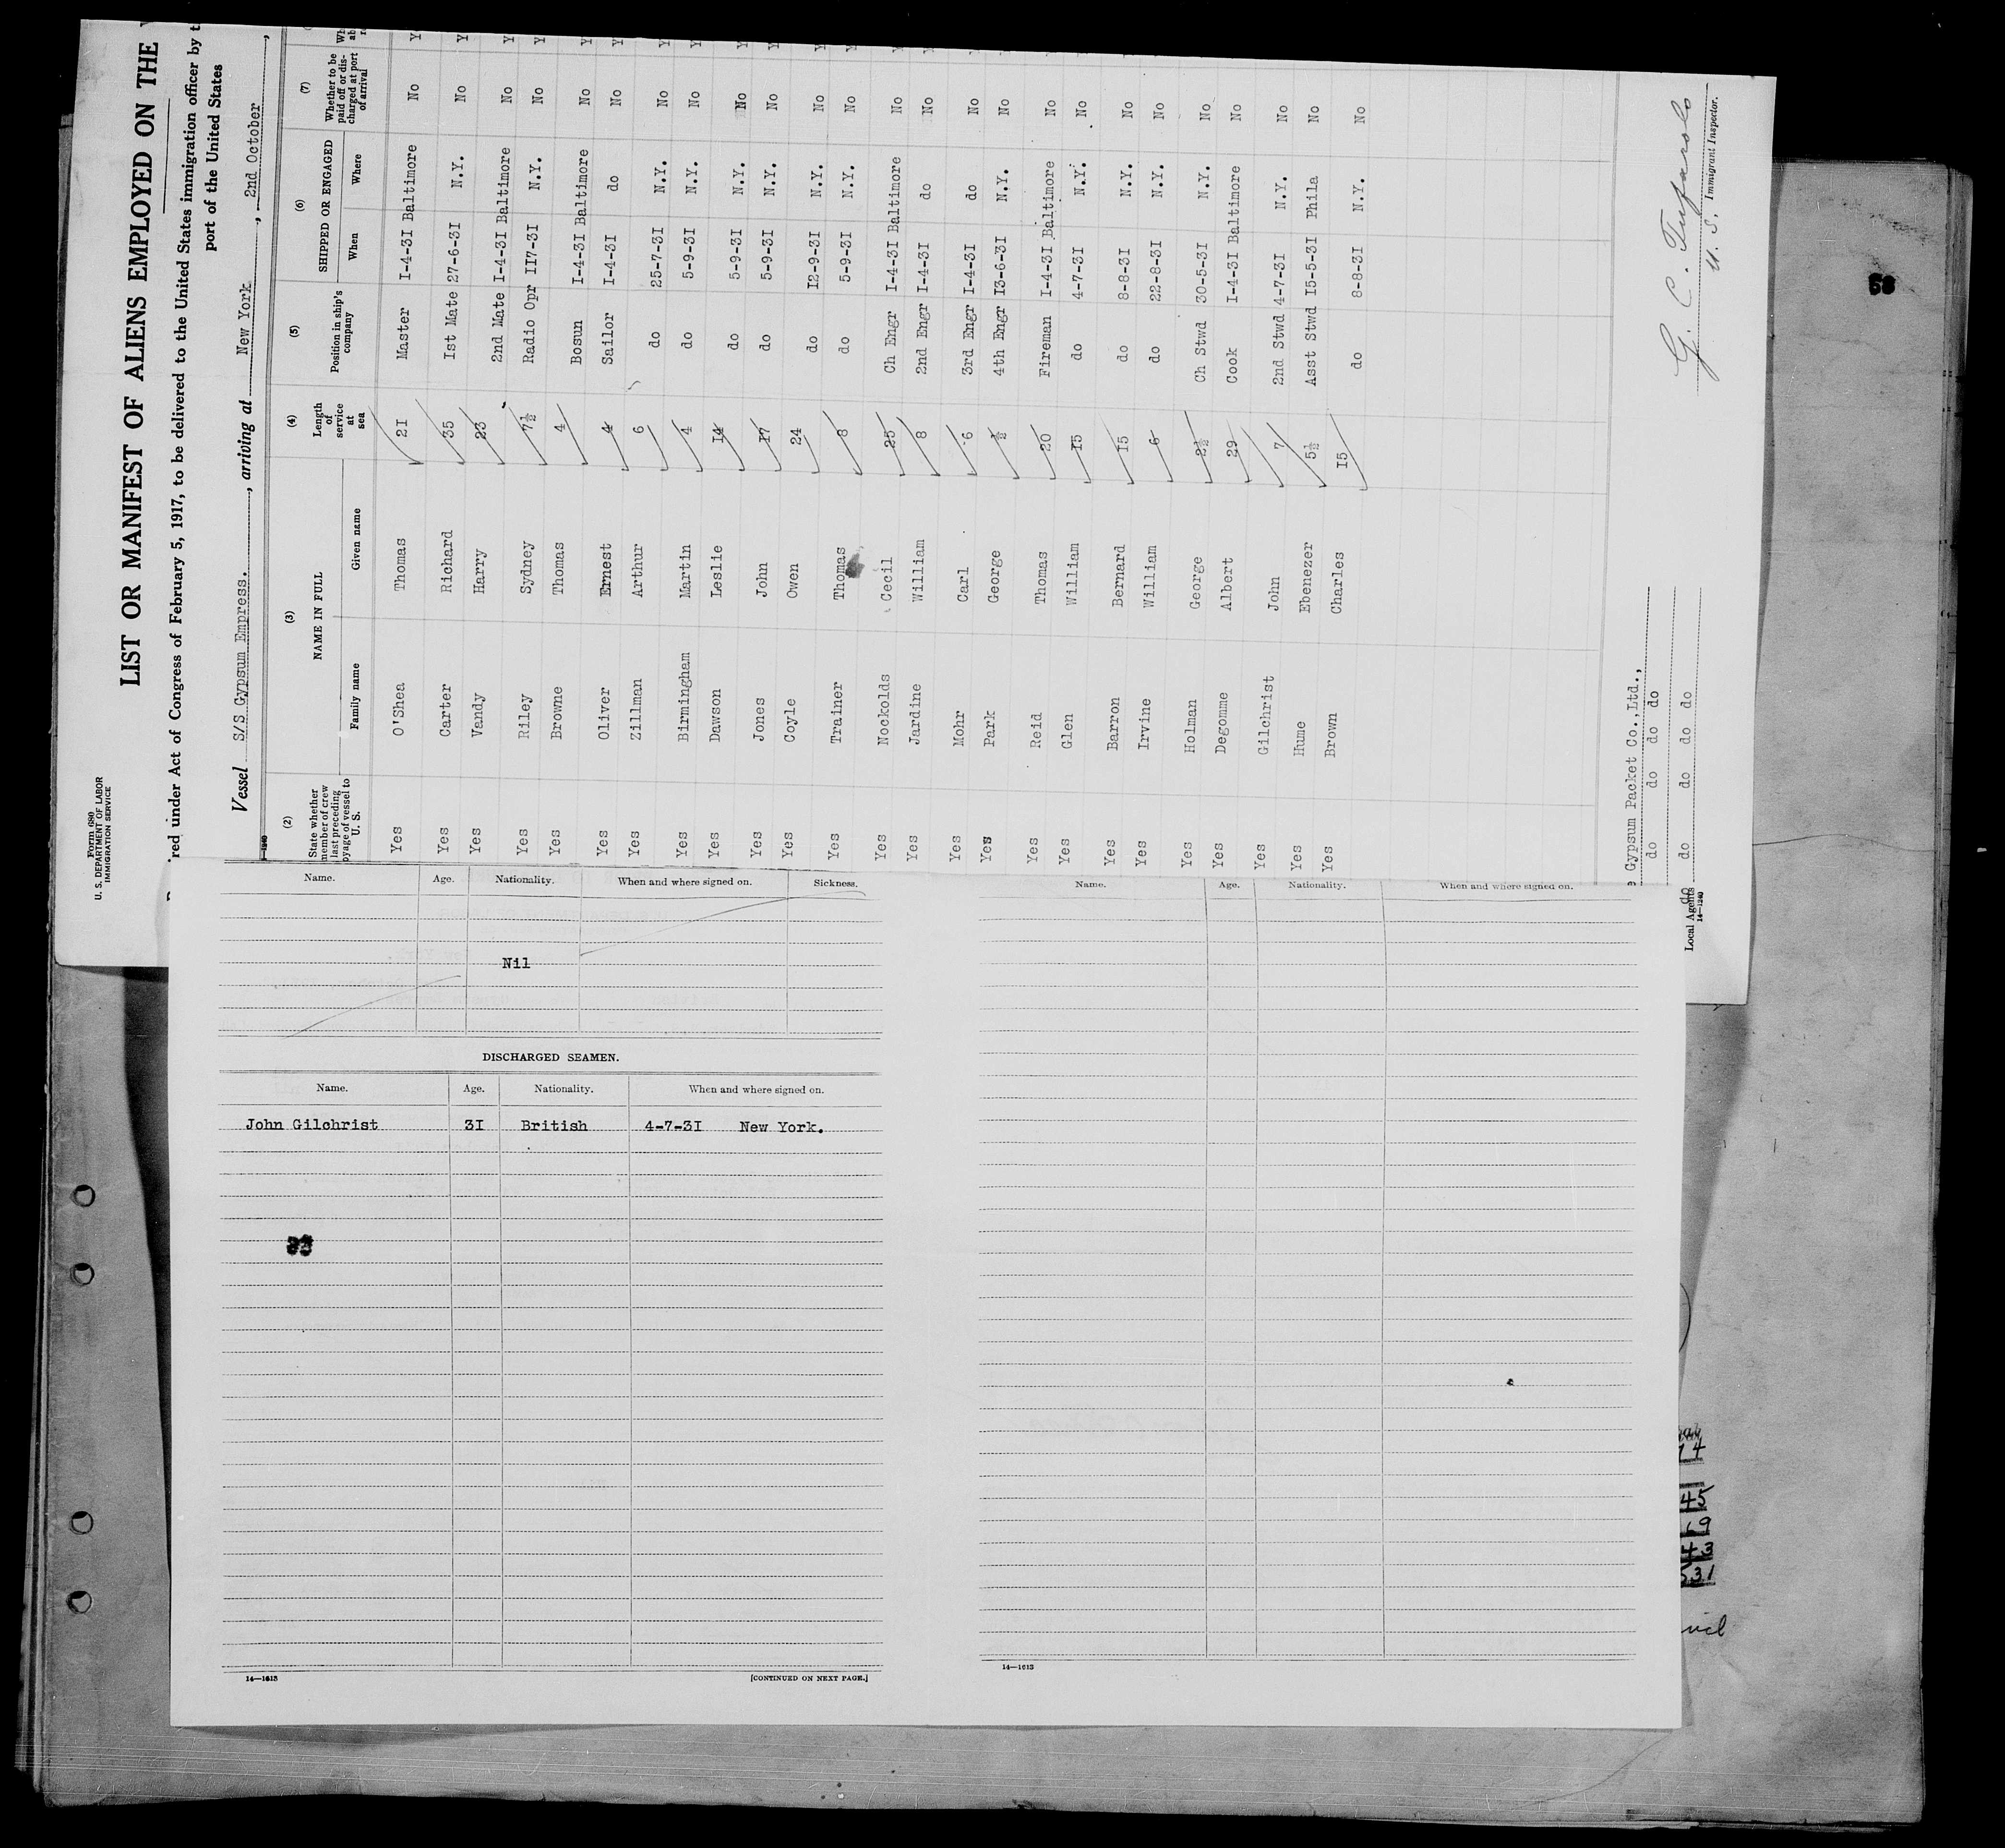 Form 680
U. S. DEPARTMENT OF LABOR
IMMIGRATION SERVICE
LIST OR MANIFEST OF ALIENS EMPLOYED ON THE
red under Act of Congress of February 5, 1917, to be delivered to the United States immigration officer by
port of the United States
Vessel S/S Gypsum Empress. , arriving at New York , 2nd October ,
(2) (3) (4) (5) (6) (7)
State whether member of crew last preceding voyage of vessel to U. S. NAME IN FULL Family name Given name Length of service at sea Position in ship's company SHIPPED OR ENGAGED When Where Whether to be paid off or discharged at port of arrival
Yes O'Shea Thomas 21 Master I-4-3I Baltimore No
Yes Carter Richard 35 Ist Mate 27-6-3I N.Y. No
Yes Vandy Harry 23 2nd Mate I-4-3I Baltimore No
Yes Riley Sydney 7½ Radio Opr II7-3I N.Y. No
Yes Browne Thomas 4 Bosun I-4-3I Baltimore No
Yes Oliver Ernest 4 Sailor I-4-3I do No
Yes Zillman Arthur 6 do 25-7-3I N.Y. No
Yes Birmingham Martin 4 do 5-9-3I N.Y. No
Yes Dawson Leslie I4 do 5-9-3I N.Y. No
Yes Jones John I7 do 5-9-3I N.Y. No
Yes Coyle Owen 24 do I2-9-3I N.Y. No
Yes Trainer Thomas 8 do 5-9-3I N.Y. No
Yes Nockolds Cecil 25 Ch Engr I-4-3I Baltimore No
Yes Jardine William 8 2nd Engr I-4-3I do No
Yes Mohr Carl 6 3rd Engr I-4-3I do No
Yes Park George ½ 4th Engr I3-6-3I N.Y. No
Yes Reid Thomas 20 Fireman I-4-3I Baltimore No
Yes Glen William I5 do 4-7-3I N.Y. No
Yes Barron Bernard I5 do 8-8-3I N.Y. No
Yes Irvine William 6 do 22-8-3I N.Y. No
Yes Holman George 2½ Ch Stwd 30-5-3I N.Y. No
Yes Degomme Albert 29 Cook I-4-3I Baltimore No
Yes Gilchrist John 7 2nd Stwd 4-7-3I N.Y. No
Yes Hume Ebenezer 5½ Asst Stwd I5-5-3I Phila No
Yes Brown Charles I5 do 8-8-3I N.Y. No
Gypsum Packet Co.,Ltd.,
do do do do
do do do do do
Local Agents
14—1240
G. C.
U. S. Immigrant Inspector.
Name. Age. Nationality. When and where signed on. Sickness.
Nil
DISCHARGED SEAMEN.
Name. Age. Nationality. When and where signed on.
John Gilchrist 3I British 4-7-3I New York.
14—1613
[CONTINUED ON NEXT PAGE.]
Name. Age. Nationality. When and where signed on.
14—1613